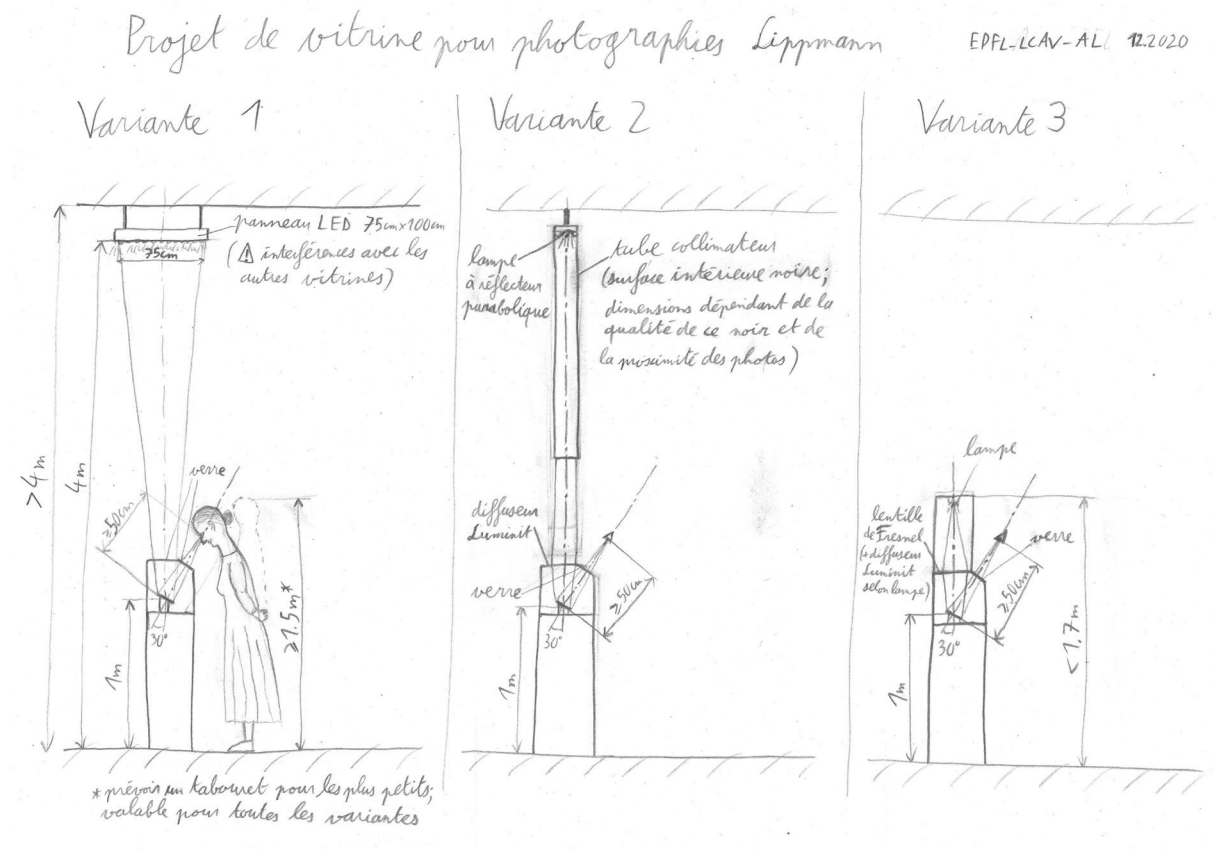 Projet de vitrine pour photographies Lippmann
EPFL-LCAV-AL 12.2020
Variante 1
panneau LED 75cm×100cm
(⚠ interférences avec les
autres vitrines)
75cm
>4m
4m
verre
≥50cm
≥1.5m*
30°
1m
* prévoir un tabouret pour les plus petits;
valable pour toutes les variantes
Variante 2
lampe
à réflecteur
parabolique
tube collimateur
(surface intérieure noire;
dimensions dépendant de la
qualité de ce noir et de
la proximité des photos)
diffuseur
Luminit
verre
≥50cm
30°
1m
Variante 3
lampe
lentille
de Fresnel
(+diffuseur
Luminit
selon lampe)
verre
≥50cm
30°
1m
<1.7m